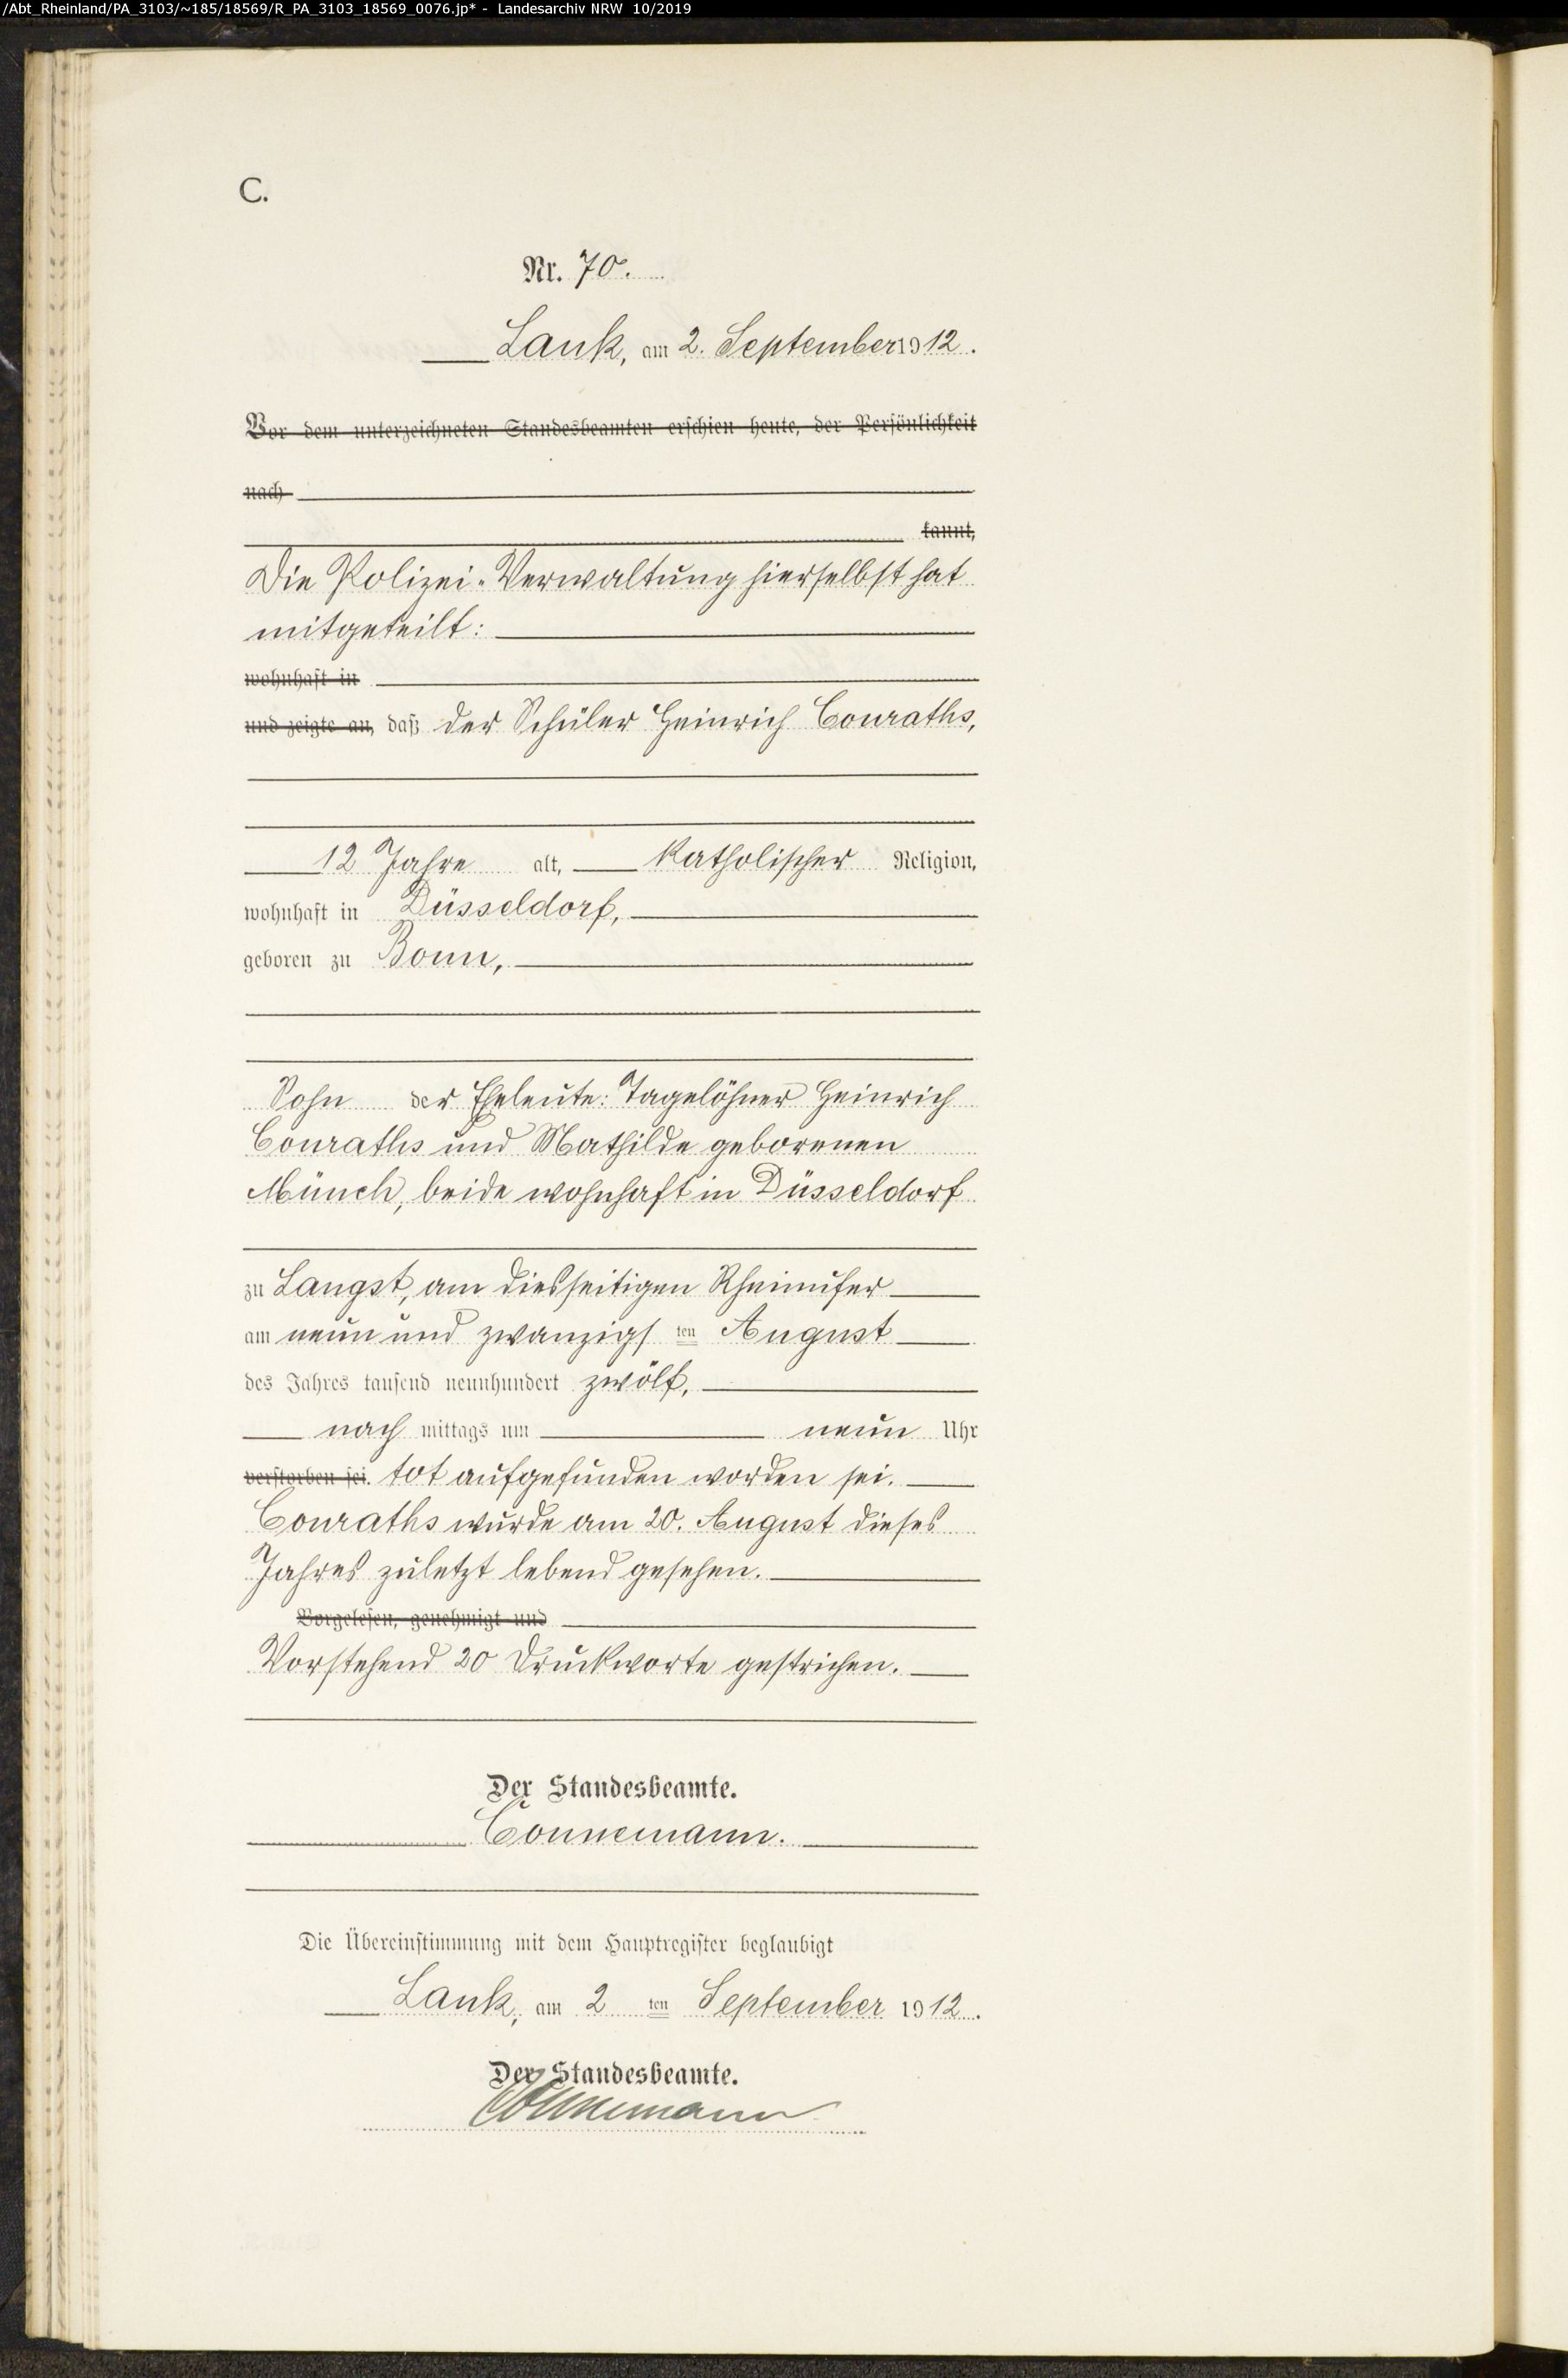 /Abt_Rheinland/PA_3103/~185/18569/R_PA_3103_18569_0076.jp* - Landesarchiv NRW 10/2019
C.
Nr. 70.
Lank, am 2. September 1912.
Vor dem unterzeichneten Standesbeamten erschien heute, der Persönlichkeit
nach
kannt,
Die Polizei-Verwaltung hierselbst hat
mitgeteilt:
wohnhaft in
und zeigte an, daß der Schüler Heinrich Conraths,
12 Jahre alt, katholischer Religion,
wohnhaft in Düsseldorf,
geboren zu Bonn,
Sohn der Eheleute: Tagelöhner Heinrich
Conraths und Mathilde geborenen
Münch, beide wohnhaft in Düsseldorf
zu Langst, am diesseitigen Rheinufer
am neun und zwanzigsten August
des Jahres tausend neunhundert zwölf,
nach mittags um neun Uhr
verstorben sei. tot aufgefunden worden sei.
Conraths wurde am 20. August dieses
Jahres zuletzt lebend gesehen.
Vorgelesen, genehmigt und
Vorstehend 20 Druckworte gestrichen.
Der Standesbeamte.
Connemann.
Die Übereinstimmung mit dem Hauptregister beglaubigt
Lank, am 2 ten September 1912.
Der Standesbeamte.
Connemann